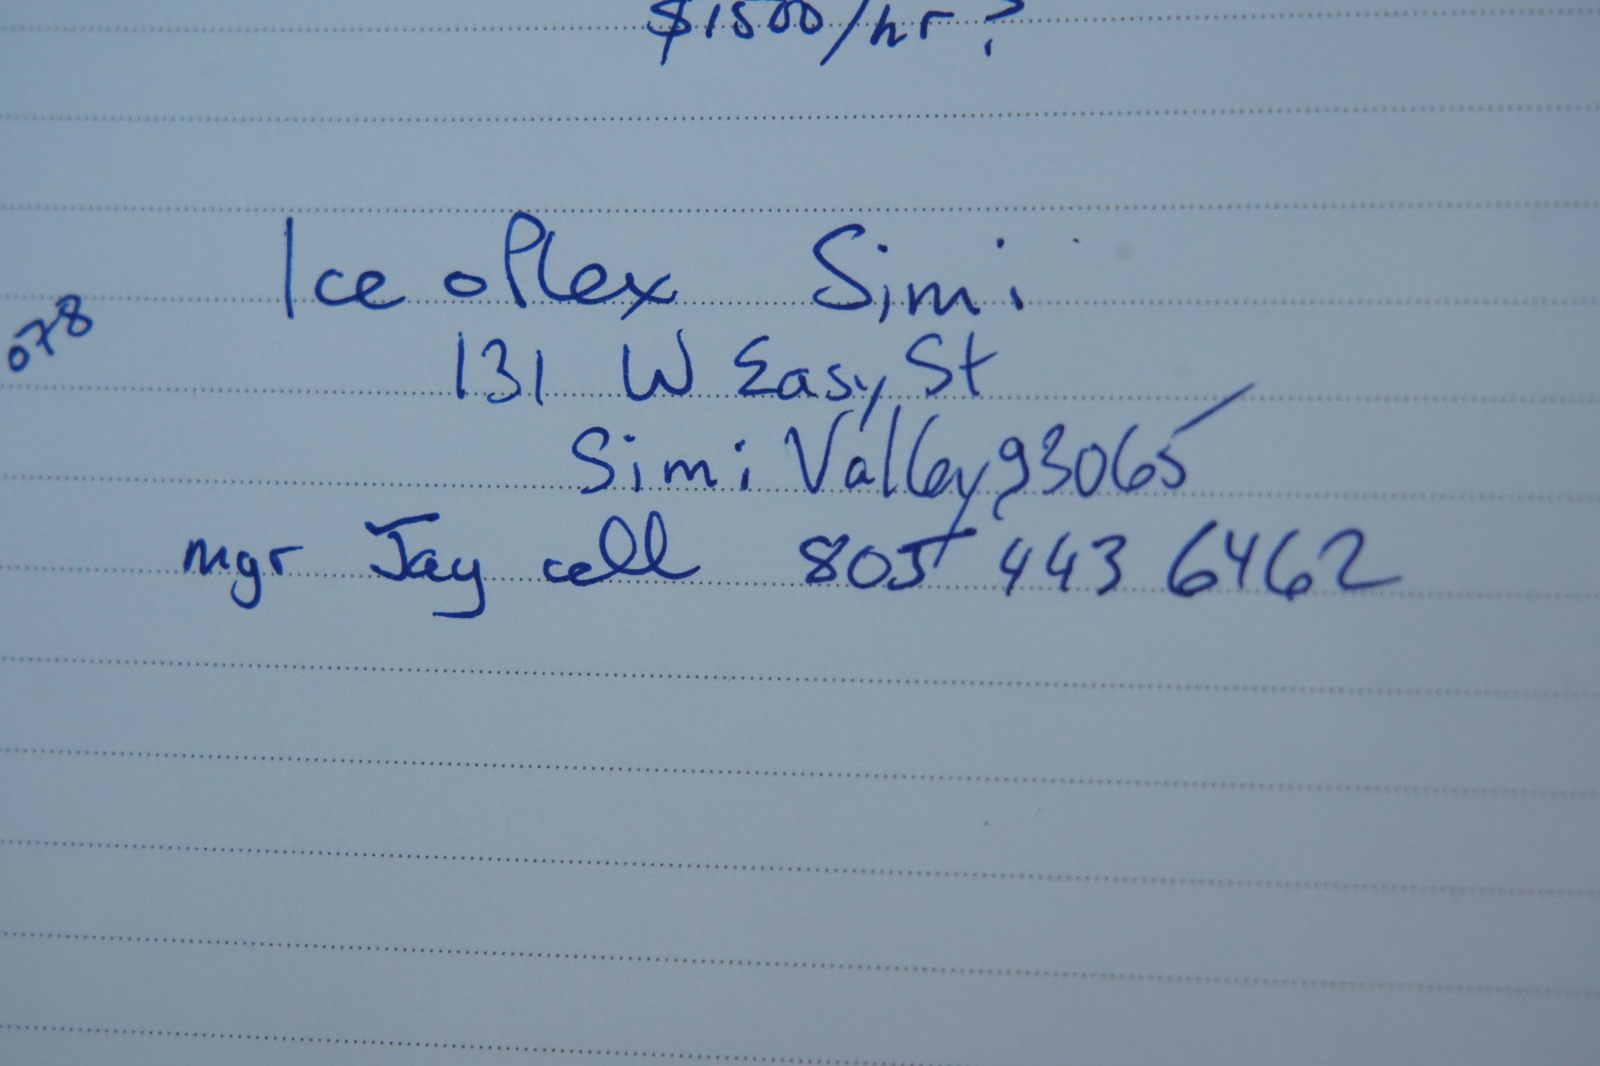 $1500/hr?
Ice oPlex Simi
078
131 W Easy St
Simi Valley 93065
mgr Jay cell 805 443 6462